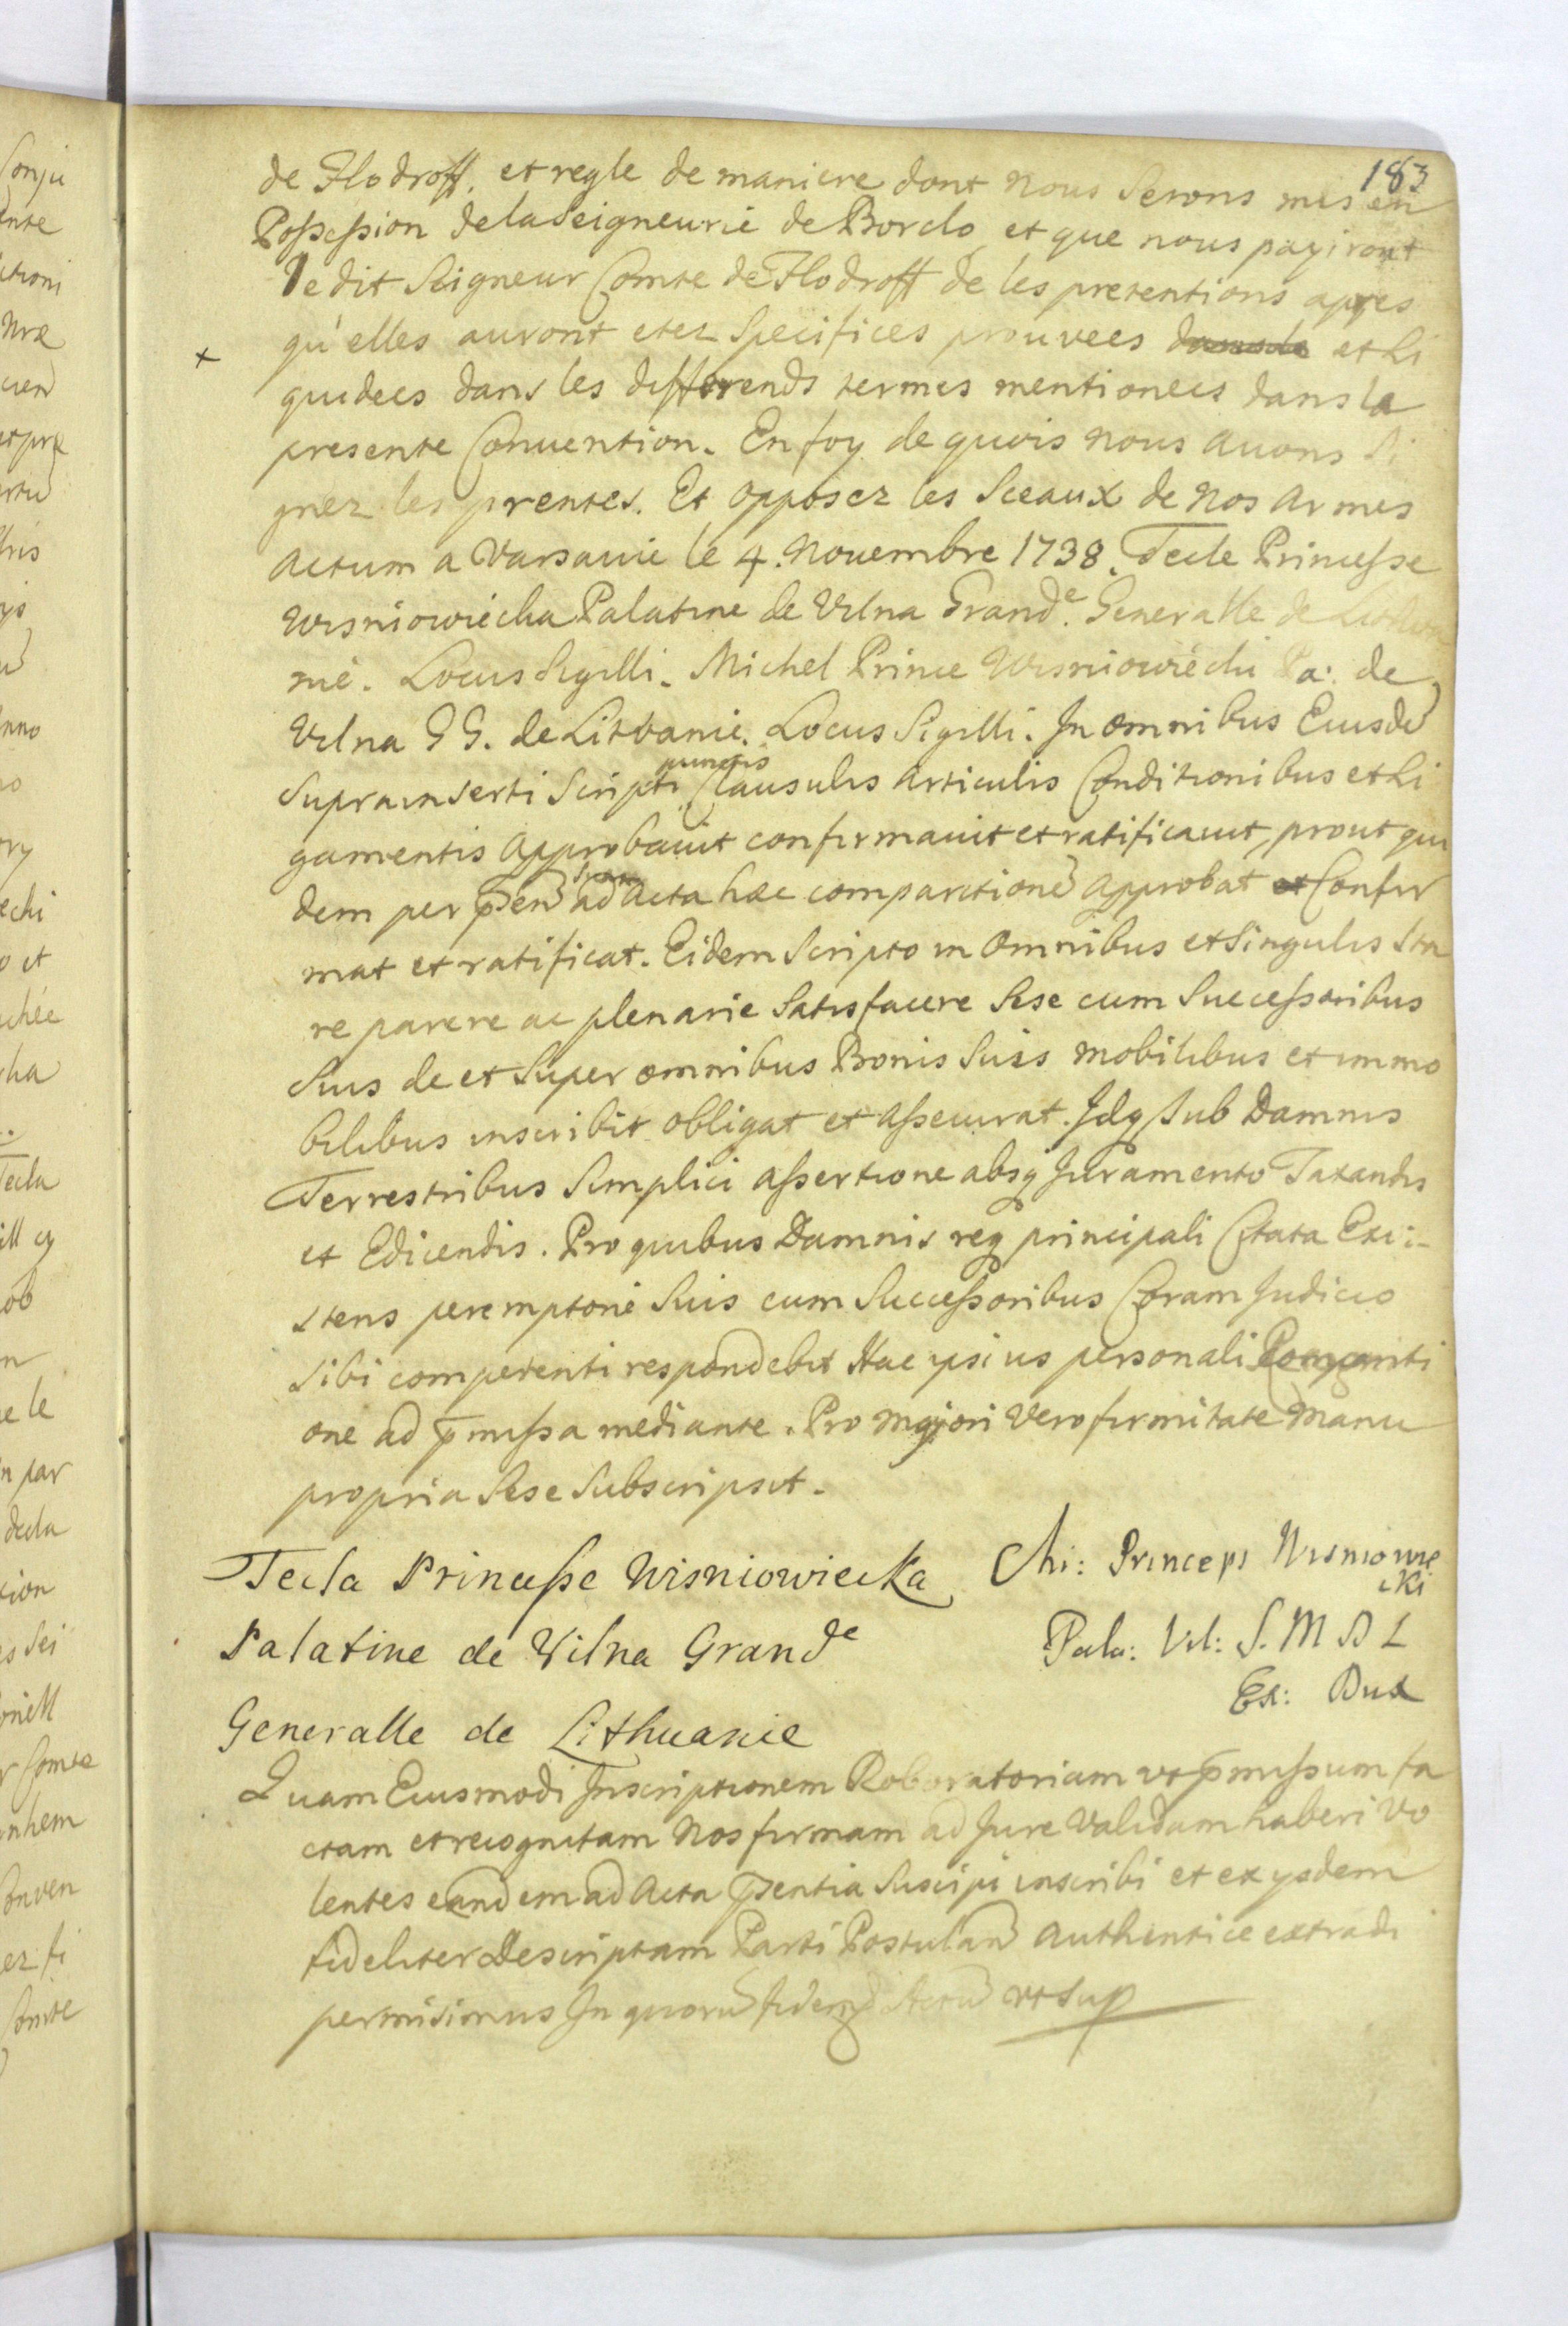 183
de Flodroff. et regle de maniere dont nous Serons mis en
Possession de la Seigneurie de Borclo et que nous payiront
le dit Seigneur Comte de Flodroff de les pretentions apres
qu'elles auront etez Specifices prouvees et Li
quidees dans les differends termes mentionees dans la
presente Convention. En foy de quois nous avons Si
gnez les prentes. Et opposez les Sceaux de nos Armes
Actum a Varsavie le 4. Nouembre 1738. Tecle Princesse
Wisniowiecka Palatine de Vilna Grande. Generalle de
nie. Locus Sigilli. Michel Prince Wisniowiecki Pa: de
Vilna G G. de Litvanie. Locus Sigilli. In omnibus Eiusde
Suprainserti Scripti punctis Clausulis Articulis Conditionibus et Li
gamentis Approbauit confirmauit et ratificauit, prout qui
dem per psen ad Acta hæc comparitione Approbat et Confir
mat et ratificat. Eidem Scripto in Omnibus et Singulis Sta
re parere ac plenarie Satisfacere Sese cum Successoribus
Suis de et Super omnibus Bonis Suis mobilibus et immo
bilibus inscribit obligat et assecurat. Idq Sub Damnis
Terrestribus Simplici assertione absq Juramento Taxandis
et Edicendis. Pro quibus Damnis req principali Citata Exi:
stens peremptorie Suis cum Successoribus Coram Judicio
Sibi competenti respondebit Hac ipsius personali
one ad pmissa mediante. Pro Majori Vero firmitate Manu
propria Sese Subscripsit.
Tecla Princesse Wisniowiecka
Palatine de Vilna Grande
Generalle de Lithuanie
Mi: Princeps Wisniowie
cki
Pala: Vil: S. M D L
Ex: Dux
Quam Eiusmodi Inscriptionem Roboratoriam vt pmissum fa
ctam et recognitam Nos firmam ad Jure Validam haberi Vo
lentes eandem ad Acta psentia Suscipi inscribi et ex ysdem
fideliter Descriptam Parti Postulan Authentice extradi
permisimus In quoru fidem Actu vt Sup